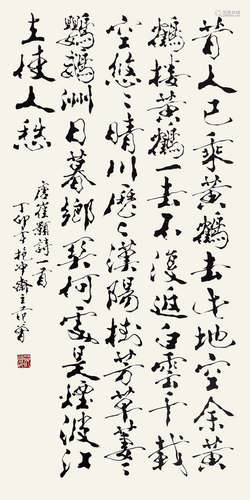 昔人已乘黄鶴去此地空余黄
鶴樓黄鶴一去不復返白雲千載
空悠〻晴川歷〻漢陽樹芳草萋〻
鸚鵡洲日暮鄉關何處是煙波江
上使人愁
唐崔顥詩一首
丁卯年抱冲齋主范曾